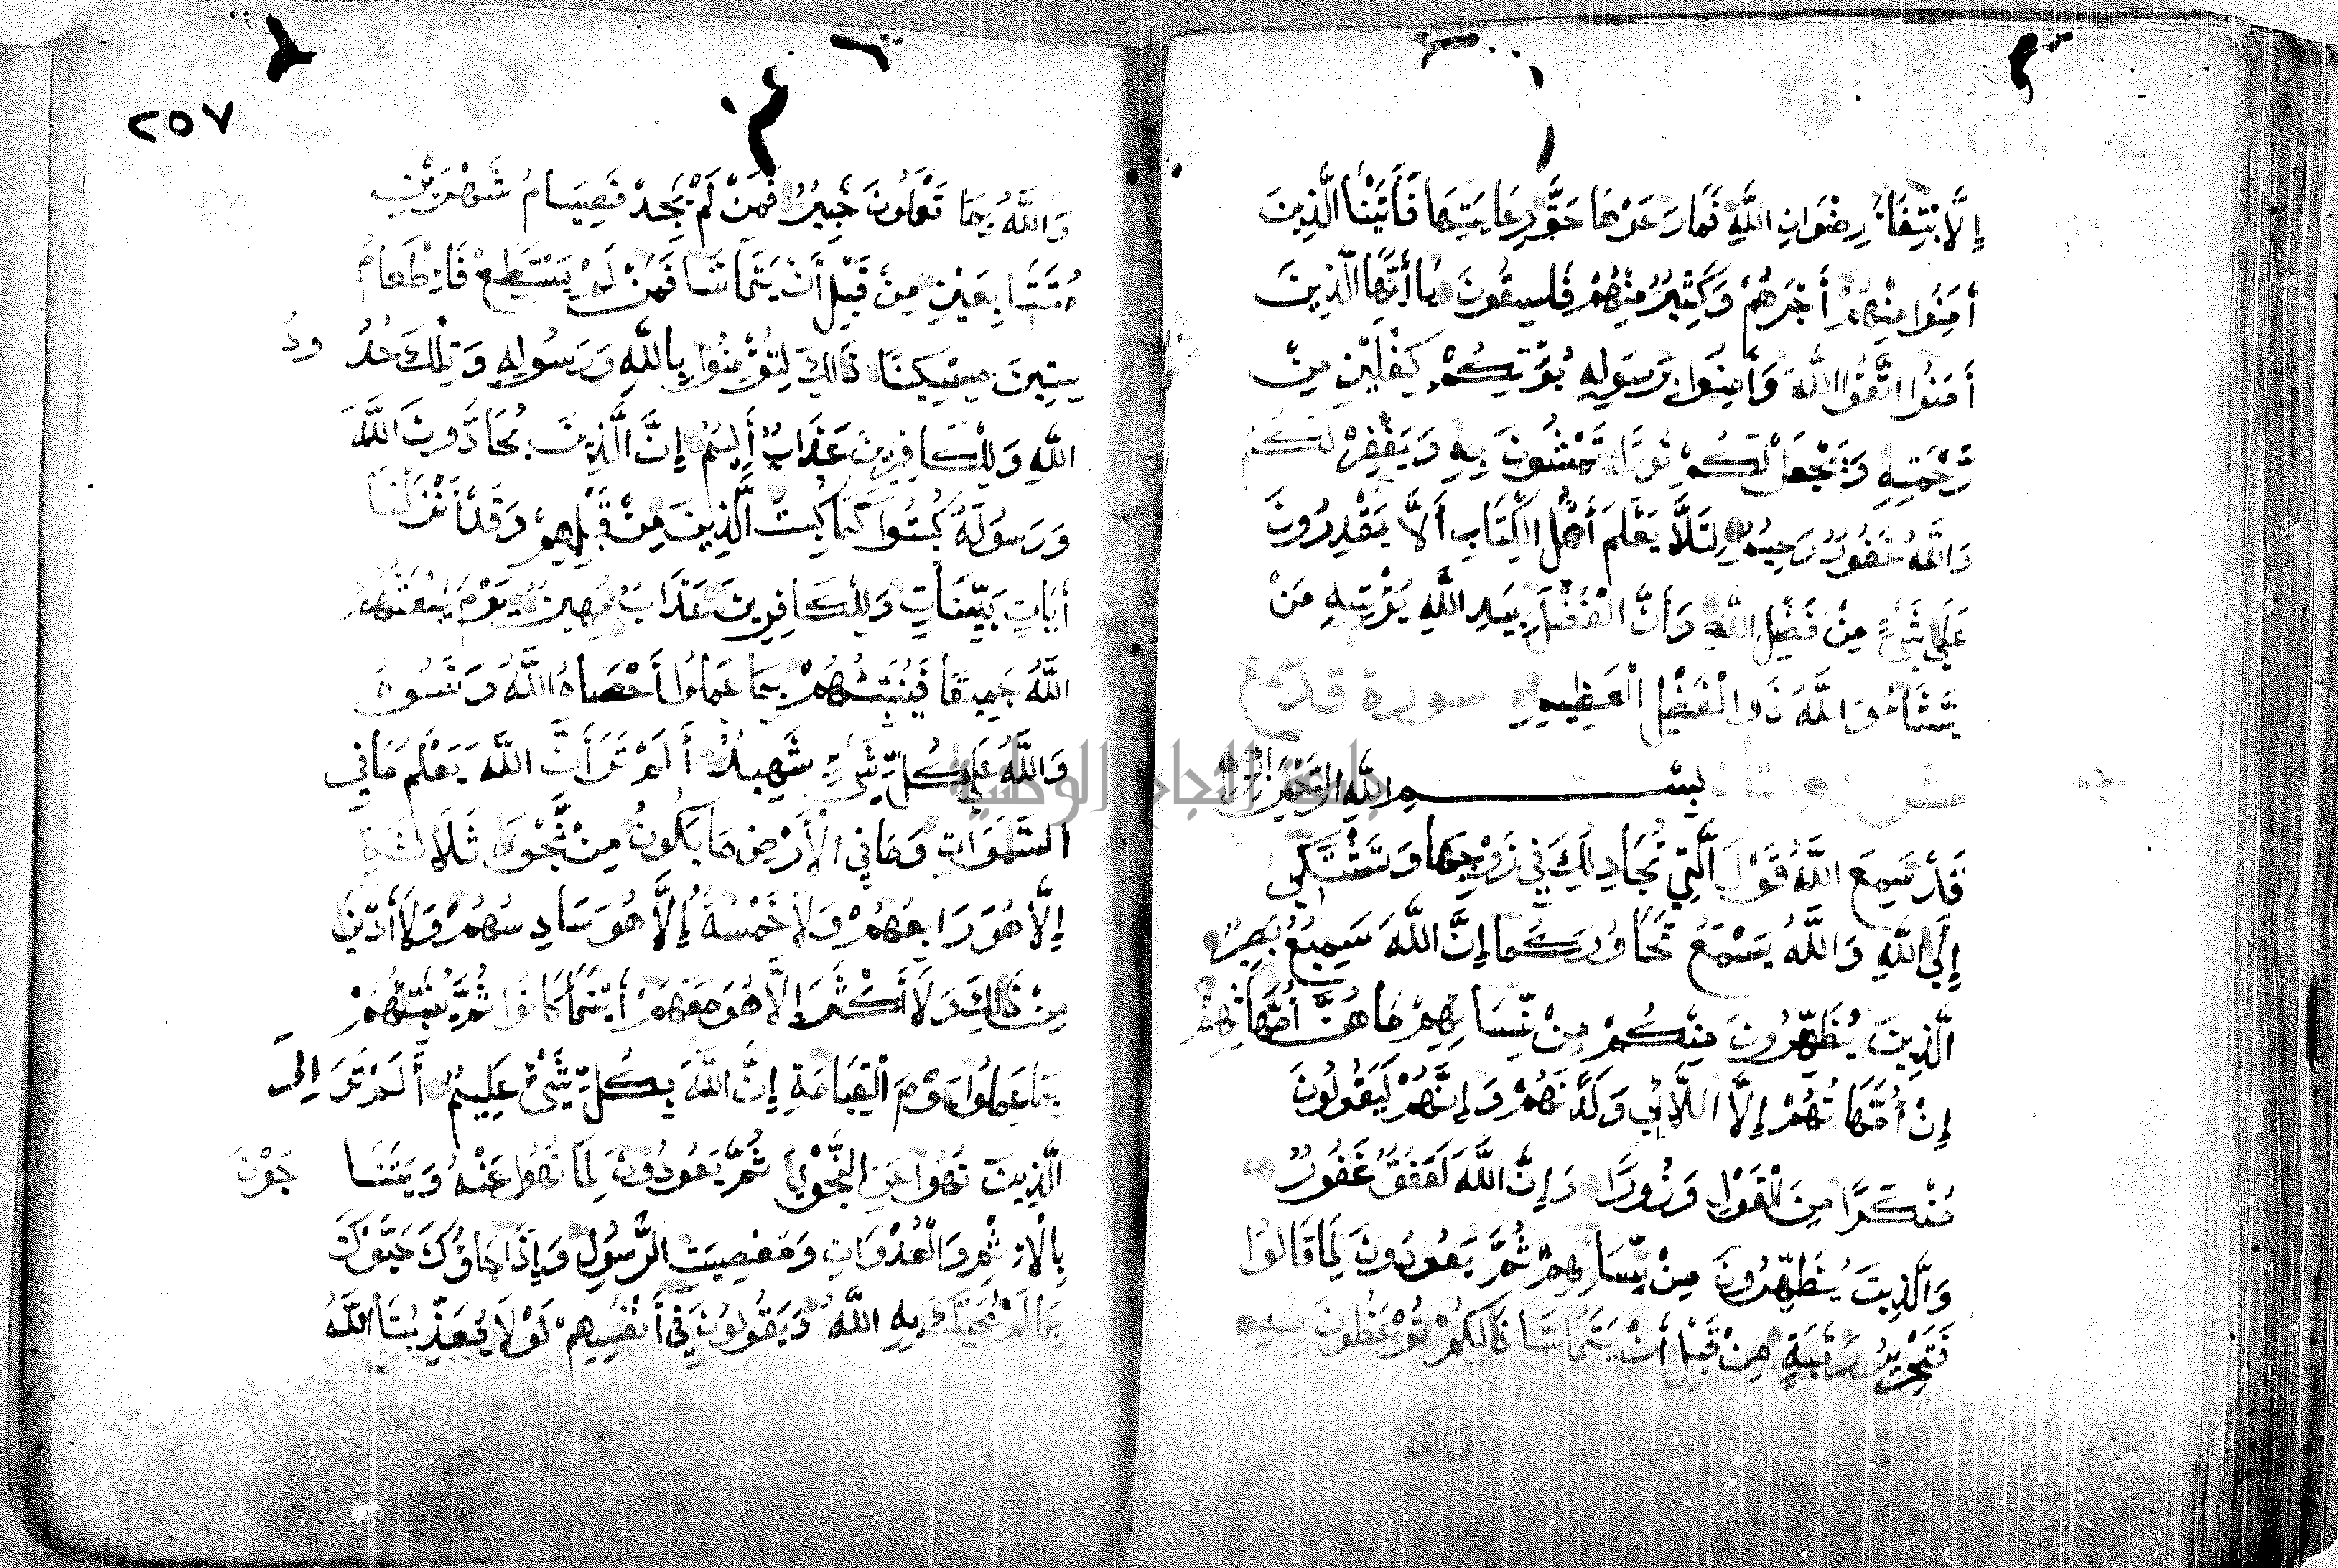 إِلَّا ابْتِغَاءَ رِضْوَانِ اللَّهِ فَمَا رَعَوْهَا حَقَّ رِعَايَتِهَا فَأَتَيْنَا الَّذِينَ
أَمَنُوا مِنْهُمْ أَجْرَهُمْ وَكَثِيرٌ مِنْهُمْ فَاسِقُونَ يَا أَيُّهَا الَّذِينَ
أَمَنُوا اتَّقُوا اللَّهَ وَأَمِنُوا بِرَسُولِهِ يُؤْتِكُمْ كِفْلَيْنِ مِنْ
رَحْمَتِهِ وَيَجْعَلْ لَكُمْ نُورًا تَمْشُونَ بِهِ وَيَغْفِرْ لَكُمْ
وَاللَّهُ غَفُورٌ رَحِيمٌ لِئَلَّا يَعْلَمَ أَهْلُ الْكِتَابِ أَلَّا يَقْدِرُونَ
عَلَى شَيْءٍ مِنْ فَضْلِ اللَّهِ وَأَنَّ الْفَضْلَ بِيَدِ اللَّهِ يُؤْتِيهِ مَنْ
يَشَاءُ وَاللَّهُ ذُو الْفَضْلِ الْعَظِيمِ سورة قد سمع
بِسْمِ اللَّهِ الرَّحْمَنِ
قَدْ سَمِعَ اللَّهُ قَوْلَ الَّتِي تُجَادِلُكَ فِي زَوْجِهَا وَتَشْتَكِي
إِلَى اللَّهِ وَاللَّهُ يَسْمَعُ تَحَاوُرَكُمَا إِنَّ اللَّهَ سَمِيعٌ بَصِيرٌ
الَّذِينَ يُظَهِّرُونَ مِنْكُمْ مِنْ نِسَائِهِمْ مَا هُنَّ أُمَّهَاتِهِمْ
إِنْ أُمَّهَاتُهُمْ إِلَّا اللَّائِي وَلَدْنَهُمْ وَإِنَّهُمْ لَيَقُولُونَ
مُنْكَرًا مِنَ الْقَوْلِ وَزُورًا وَإِنَّ اللَّهَ لَعَفُوٌّ غَفُورٌ
وَالَّذِينَ يُظَهِّرُونَ مِنْ نِسَائِهِمْ ثُمَّ يَعُودُونَ لِمَا قَالُوا
فَتَحْرِيرُ رَقَبَةٍ مِنْ قَبْلِ أَنْ يَتَمَاسَّا ذَلِكُمْ تُوعَظُونَ بِهِ
وَاللَّهُ
٢٥٧
وَاللَّهُ بِمَا تَعْمَلُونَ خَبِيرٌ فَمَنْ لَمْ يَجِدْ فَصِيَامُ شَهْرَيْنِ
مُتَتَابِعَيْنِ مِنْ قَبْلِ أَنْ يَتَمَاسَّا فَمَنْ لَمْ يَسْتَطِعْ فَإِطْعَامُ
سِتِّينَ مِسْكِينًا ذَالِكَ لِتُؤْمِنُوا بِاللَّهِ وَرَسُولِهِ وَتِلْكَ حُدُودُ
اللَّهِ وَلِلْكَافِرِينَ عَذَابٌ أَلِيمٌ إِنَّ الَّذِينَ يُحَادُّونَ اللَّهَ
وَرَسُولَهُ كُبِتُوا كَمَا كُبِتَ الَّذِينَ مِنْ قَبْلِهِمْ وَقَدْ أَنْزَلْنَا
أَيَاتٍ بَيِّنَاتٍ وَلِلْكَافِرِينَ عَذَابٌ مُهِينٌ يَوْمَ يَبْعَثُهُمُ
اللَّهُ جَمِيعًا فَيُنَبِّئُهُمْ بِمَا عَمِلُوا أَحْصَاهُ اللَّهُ وَنَسُوهُ
وَاللَّهُ عَلَى كُلِّ شَيْءٍ شَهِيدٌ أَلَمْ تَرَ أَنَّ اللَّهَ يَعْلَمُ مَا فِي
السَّمَوَاتِ وَمَا فِي الْأَرْضِ مَا يَكُونُ مِنْ نَجْوَى ثَلَاثَةٍ
إِلَّا هُوَ رَابِعُهُمْ وَلَا خَمْسَةٍ إِلَّا هُوَ سَادِسُهُمْ وَلَا أَدْنَى
مِنْ ذَالِكَ وَلَا أَكْثَرَ إِلَّا هُوَ مَعَهُمْ أَيْنَمَا كَانُوا ثُمَّ يُنَبِّئُهُمْ
بِمَا عَمِلُوا يَوْمَ الْقِيَامَةِ إِنَّ اللَّهَ بِكُلِّ شَيْءٍ عَلِيمٌ أَلَمْ تَرَ إِلَى
الَّذِينَ نُهُوا عَنِ النَّجْوَى ثُمَّ يَعُودُونَ لِمَا نُهُوا عَنْهُ وَيَتَنَاجَوْنَ
بِالْإِثْمِ وَالْعُدْوَانِ وَمَعْصِيَتِ الرَّسُولِ وَإِذَا جَاؤُكَ حَيَّوْكَ
بِمَا لَمْ يُحَيِّكَ بِهِ اللَّهُ وَيَقُولُونَ فِي أَنْفُسِهِمْ لَوْلَا يُعَذِّبُنَا اللَّهُ
جامعة النجاح الوطنية